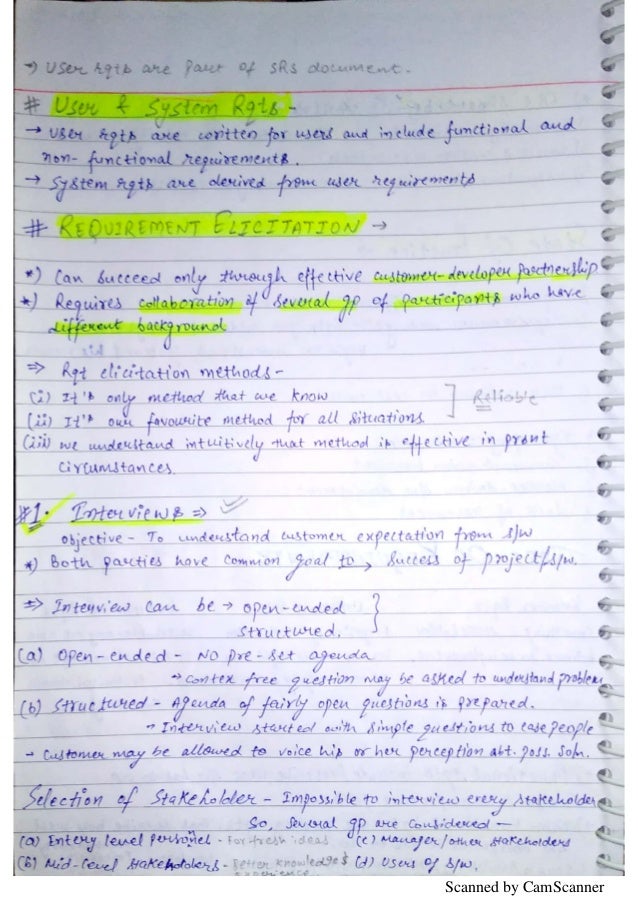 → User rqts are part of SRS document.
# User & System Rqts -
→ User rqts are written for users and include functional and
non-functional requirements.
→ System rqts are derived from user requirements
# REQUIREMENT ELICITATION →
*) Can succeed only through effective customer-developer partnership
*) Requires collaboration of several gp of participants who have
different background
⇒ Rqt elicitation methods -
(i) It's only method that we know
(ii) It's our favourite method for all situations. ] Reliable
(iii) we understand intuitively that method is effective in prsnt
circumstances.
#1. Interviews ⇒
objective - To understand customer expectation from s/w
*) Both parties have common goal to → success of project/s/w.
⇒ Interview can be → open-ended
structured. }
(a) Open-ended - NO pre-set agenda
→ contex free question may be asked to understand problem
(b) Structured - Agenda of fairly open questions is prepared.
→ Interview started with simple questions to ease people
→ Customer may be allowed to voice his or her perception abt. poss. soln.
Selection of Stakeholder - Impossible to interview every stakeholder
So, several gp are considered -
(a) Entery level personel - For fresh ideas (c) Manager/other stakeholders
(b) Mid-level stakeholders - Better knowledge & (d) Users of s/w.
experience
Scanned by CamScanner